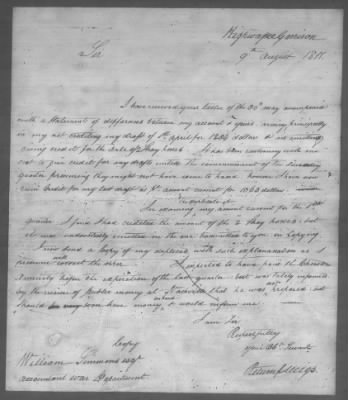 Highwassee Garrison
9th August 1811.
Sir
I have received your letter of the 30th may accompanied
with a Statement of difference between my account & yours arising principally
in my not crediting my draft of 1st april for 1806 dollars & in omitting
giving credit for the sale of 2 Stray horses. It has been customary with me
not to give credit for my drafts untill the commencement of the succeeding
quarter presuming they might not have come to hand hence I have now
given Credit for my last draft in account current for 1060 dollars.
On examining the duplicate of my amount current for the 1st
quarter I find I had credited the amount of the 2 Stray horses, but
it was inadvertently omitted in the one transmitted to you in Copying
I now send a Copy of my duplicate with such explanation as I
presume will correct the error. I expected to have paid the Cherokee
Annuity before the expiration of the last quarter but was lately informed
by the receiver of Public money at Nashville that he was not prepared but
should very soon have money, & when he had would inform me.
I am Sir
Respectfully
your Obt Servant
Return J Meigs.
Copy
William Simmons esqr
accountant war Department